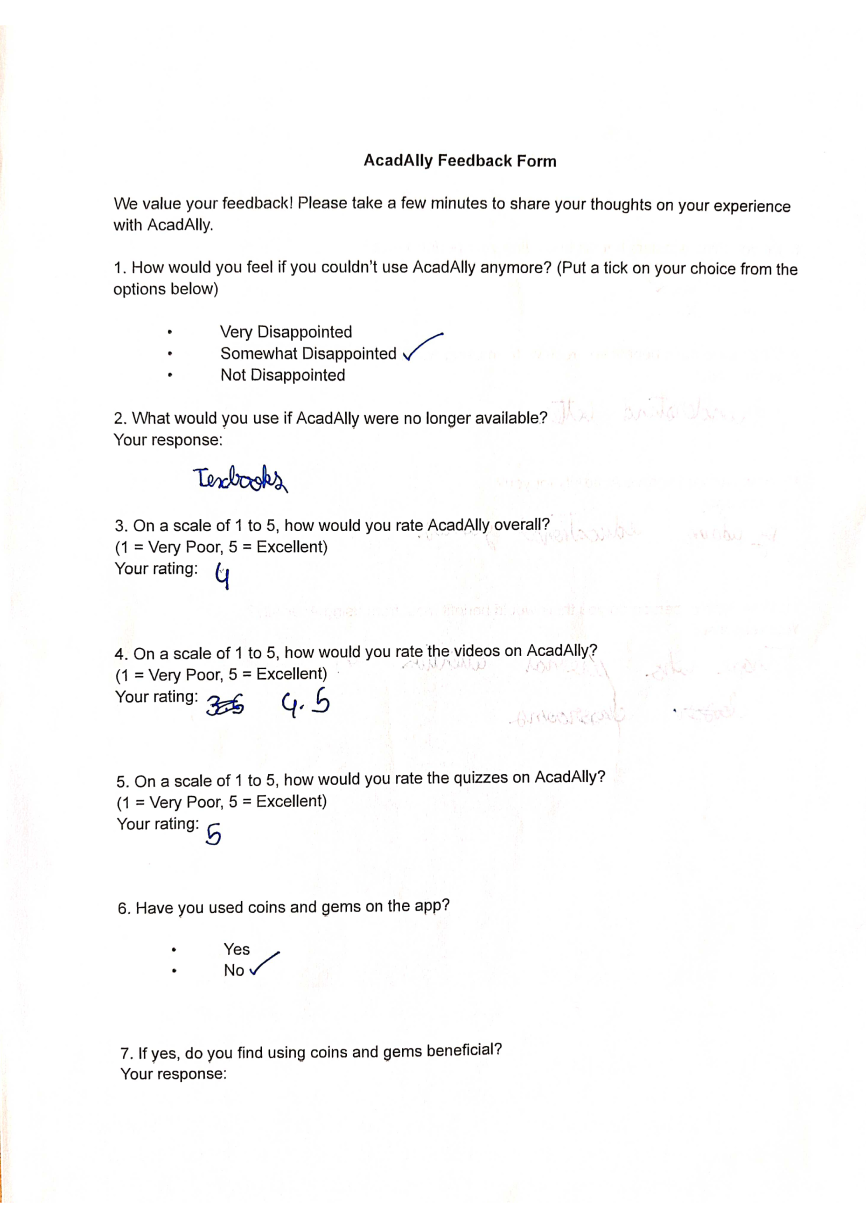 AcadAlly Feedback Form
We value your feedback! Please take a few minutes to share your thoughts on your experience
with AcadAlly.
1. How would you feel if you couldn't use AcadAlly anymore? (Put a tick on your choice from the
options below)
• Very Disappointed
• Somewhat Disappointed ✓
• Not Disappointed
2. What would you use if AcadAlly were no longer available?
Your response:
Texbooks
3. On a scale of 1 to 5, how would you rate AcadAlly overall?
(1 = Very Poor, 5 = Excellent)
Your rating: 4
4. On a scale of 1 to 5, how would you rate the videos on AcadAlly?
(1 = Very Poor, 5 = Excellent)
Your rating: 4.5
5. On a scale of 1 to 5, how would you rate the quizzes on AcadAlly?
(1 = Very Poor, 5 = Excellent)
Your rating: 5
6. Have you used coins and gems on the app?
• Yes
• No ✓
7. If yes, do you find using coins and gems beneficial?
Your response: